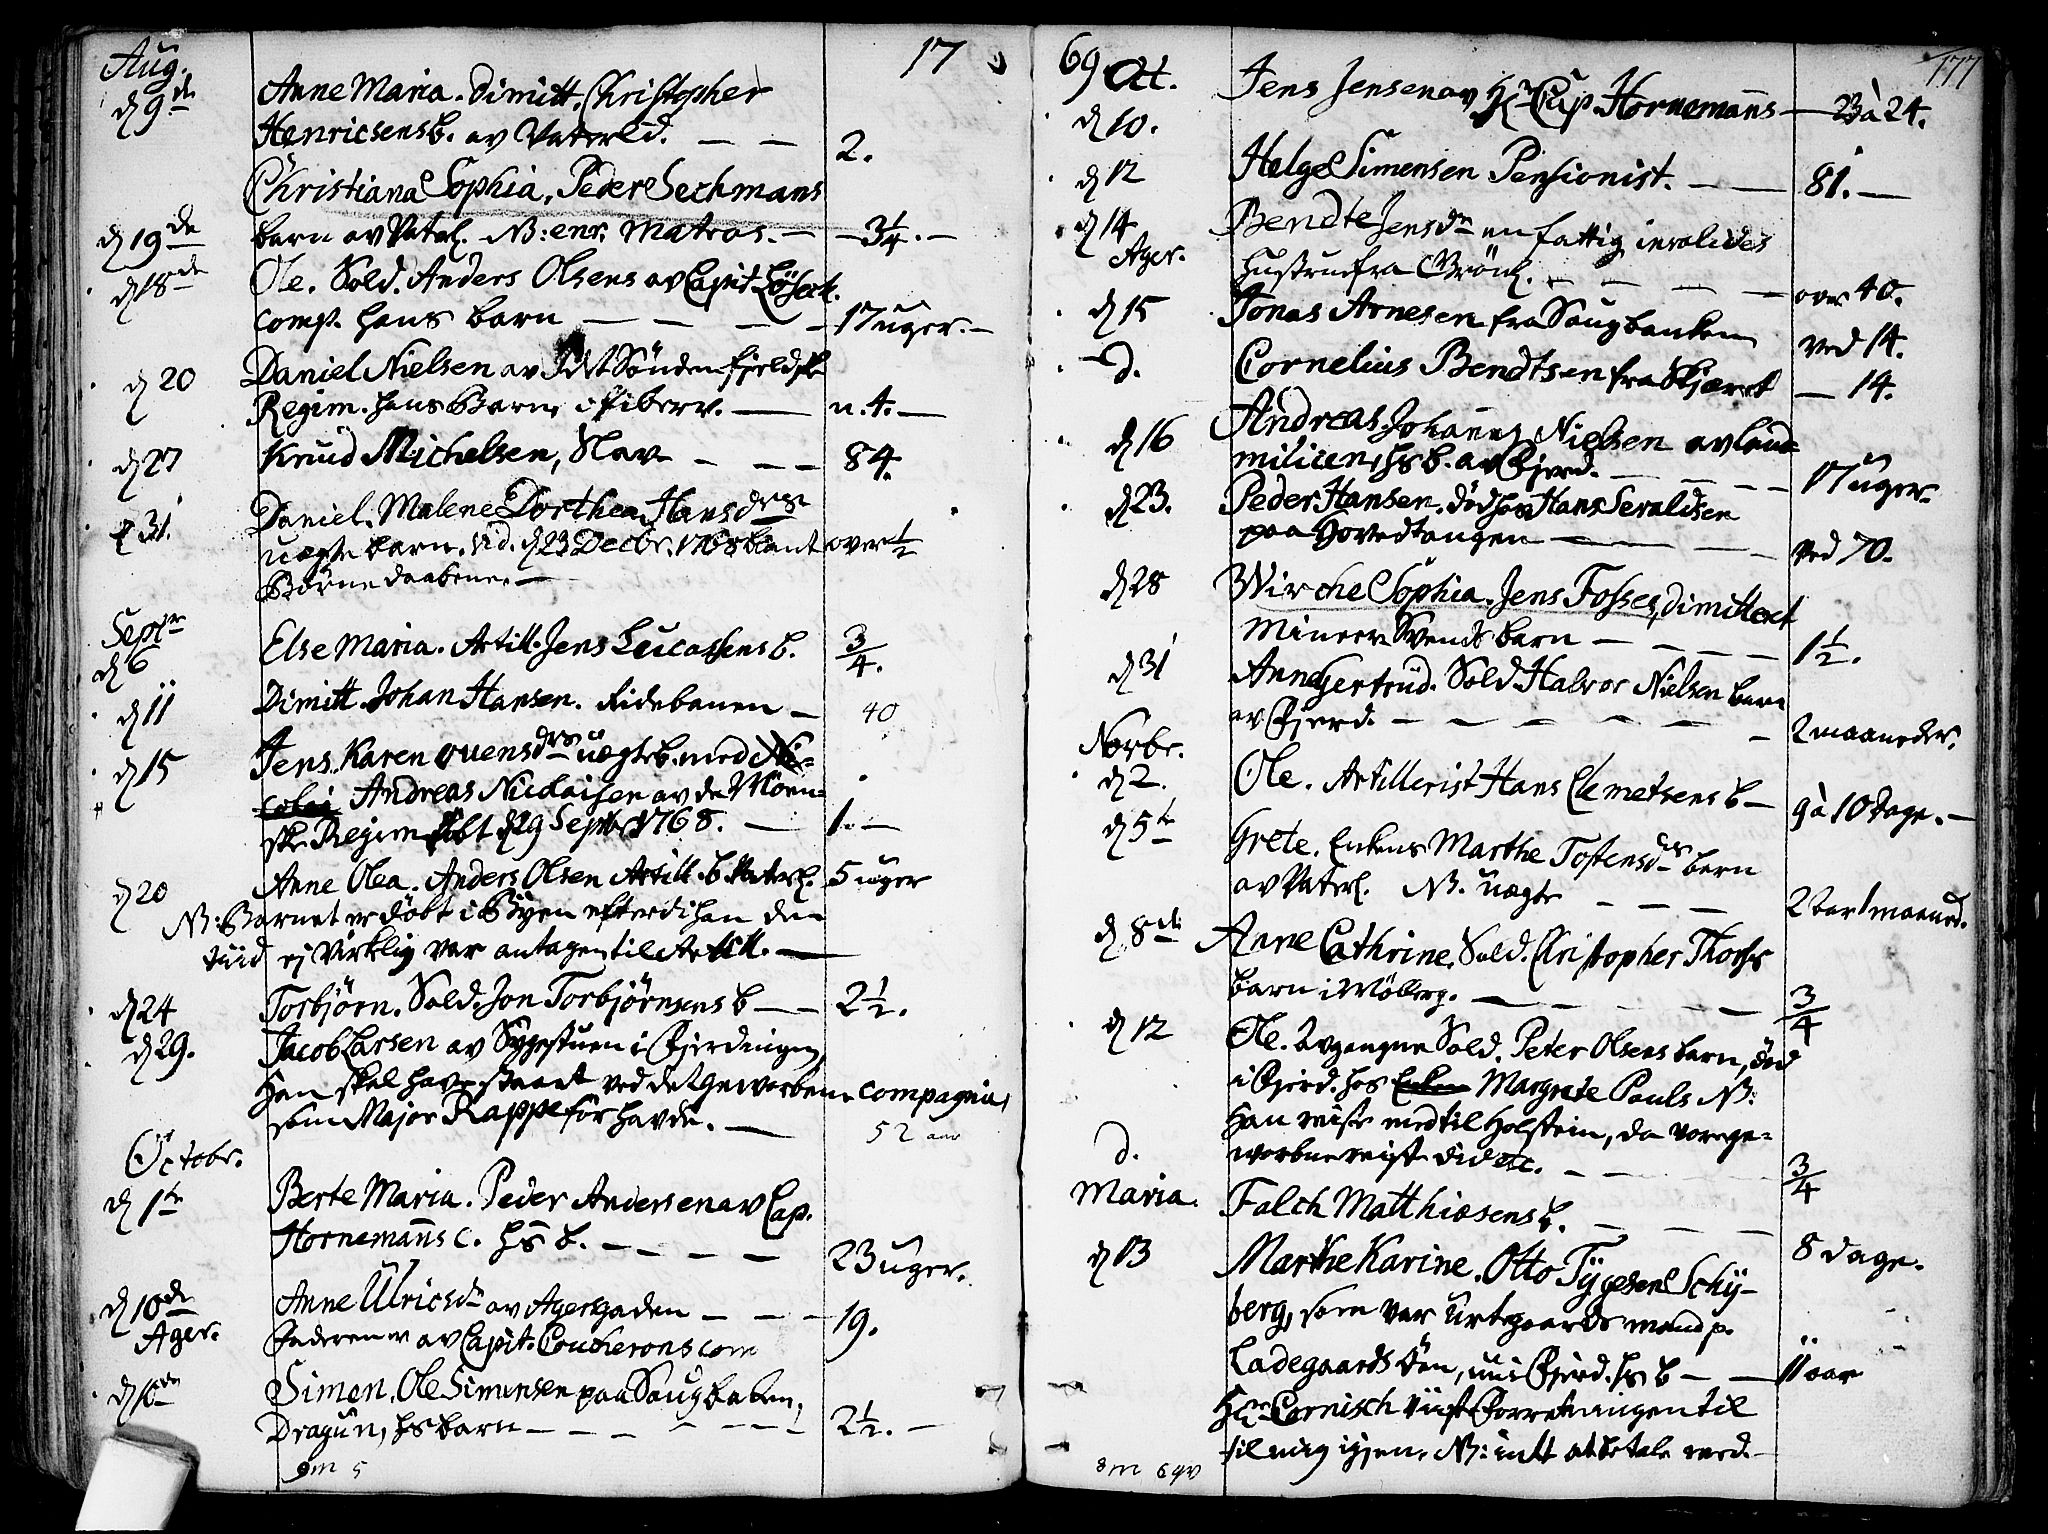 Aug. 17
d 9de Anne Maria. Dimitt. Christopher
Henricsens b. av Vaterld. — — 2.
Christiana Sophia, Peder Sechmans
d 19de barn av Vaterl. NB: enr. Matros. — — 3¼. —
d 18de Ole. Sold. Anders Olsens av Capit.
comp. hans barn — — — — 17 uger. —
d 20 Daniel Nielsen av Sønden fjeldsk
Regim. hans Barn i Piberv. — n. 4. —
d 27 Knud Michelsen, Slav — — — 84.
d 31. Daniel. Malene Dorthea Hansdrs
uægte barn. vid. d 23 Decbr. 1768 blant over ½
Børnedaabene. —
Septr
d 6 Else Maria. Artill. Jens Lucassens b. ¾.
d 11 Dimitt. Johan Hansen. Ridebanen — 40
d 15 Jens. Karen Ouensdrs uægte b. med Ni-
colai Andreas Nicolaisen av de Møen-
ske Regim. døbt d 29 Septbr 1768. — 1. —
d 20 Anne Olea. Anders Olsen Artill. b. Vaterl. 5 uger
NB: Barnet er døbt i Byen efterdi han den
tiid ej Virklig var antagen til Artill. —
d 24 Torbjörn. Sold. Jon Torbjörnsens b — — 2½.
d 29. Jacob Larsen av Sygestuen i Fjerdingen,
Han skal have staaet ved det Geworbene compagnie,
som Major Rappe forhavde. — 52 aar
Octobr.
d 1te Berte Maria. Peder Andersen av Cap.
Hornemans C. hs b. — — — — 23 uger.
d 10de Anne Ulricsdr av Agersgaden — — — 19.
Ager. Faderen er av Capit. Coucherons com
Simen. Ole Simensen paa Saugbaken,
Dragun, hs barn — — — — — — 2½. —
9 m 5
69 177
Oct. Jens Jensen av Hr Cap. Hornemans — 23 à 24.
d 10.
d 12 Helge Simensen Pensionist. — — 81. —
d 14 Bendte Jensdr en fattig invalides
Ager. hustrue fra Grönl. — — — — over 40.
d 15 Jonas Arnesen fra Saugbanken ved 14.
d. Cornelius Bendtsen fra Skjæret — 14.
d 16 Andreas. Johannes Nielsen av land-
milicen, hs b. av Fjerd. — — — — 17 uger.
d 23. Peder Hansen. død hos Hans Seraldsen
paa Hovedtangen — — — ved 70.
d 28 Wirche Sophia. Jens Fosses, dimittert
Mineer Svends barn — — — — 1½.
d 31 Anne Gertrud. Sold. Halvor Nielsen barn
av Fjerd. — — — — — 2 maaneder.
Novbr.
d 2. Ole. Artillerist Hans Clemetsens b — 9 à 10 Dage. —
d 5te Grete. Enkens Marthe Tostensdrs barn
av Vaterl. NB. uægte — — — 2 aar 1 maaned.
d 8de Anne Cathrine. Sold. Christopher Thorses
barn i Møllerg. — — — — ¾
d 12 Ole. Avgangne Sold. Peter Olsens barn, død
i Fjerd. hos Enken Margrete Pauls NB:
Han reiste med til Holstein, da vore ge-
worbne reiste did etc. — — ¾
d.
Maria. Falch Matthiesens b. — — — 8 Dage.
d 13 Marthe Karine. Otto Tygesen Schy-
berg, som var Urtegaards mand p.
Ladegaards Øen, nu i Fjerd. hs b — — 11 aar
Hr Cornisch viiste Forretningen til
til mig igjen. NB: intet at betale med. —
8 m 6 qv